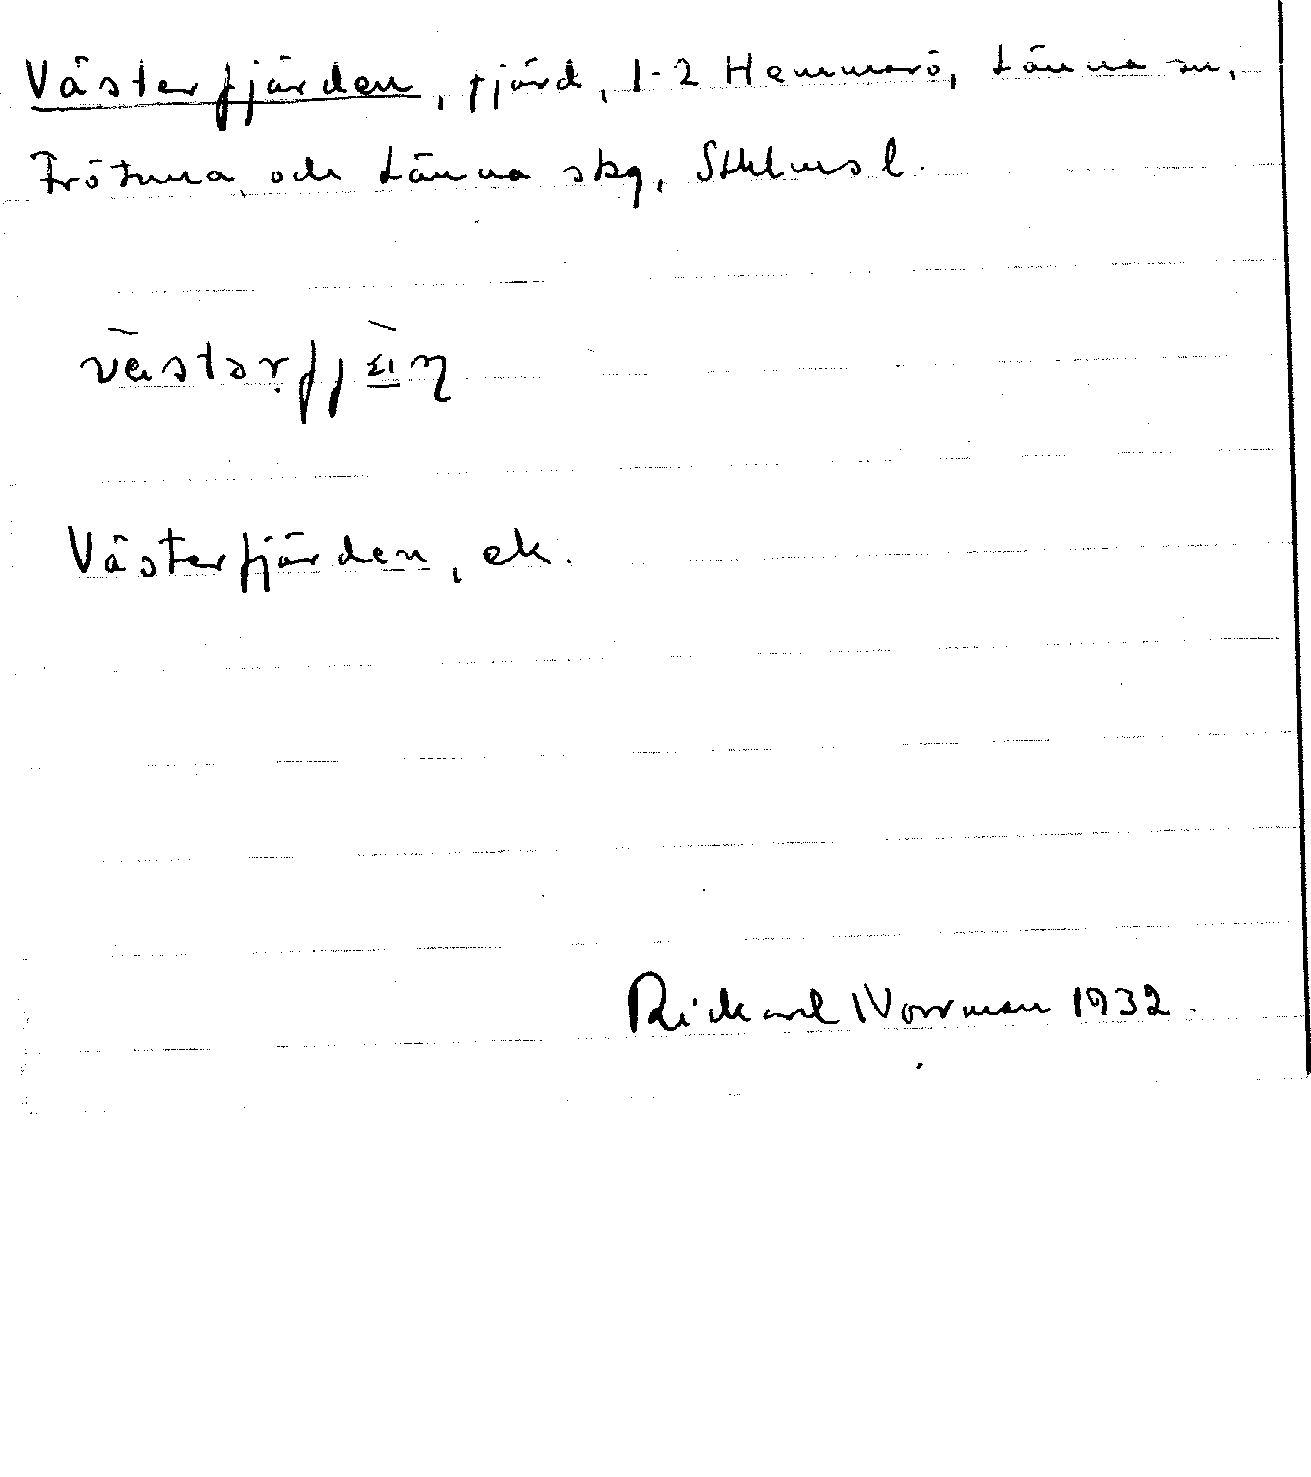 Västerfjärden, fjärd, 1-2 Hammarö, Länna sn,
Frötuna och Länna skg, Sthlms l.
Västerfjärden, ek.
Rickard Norrman 1932.